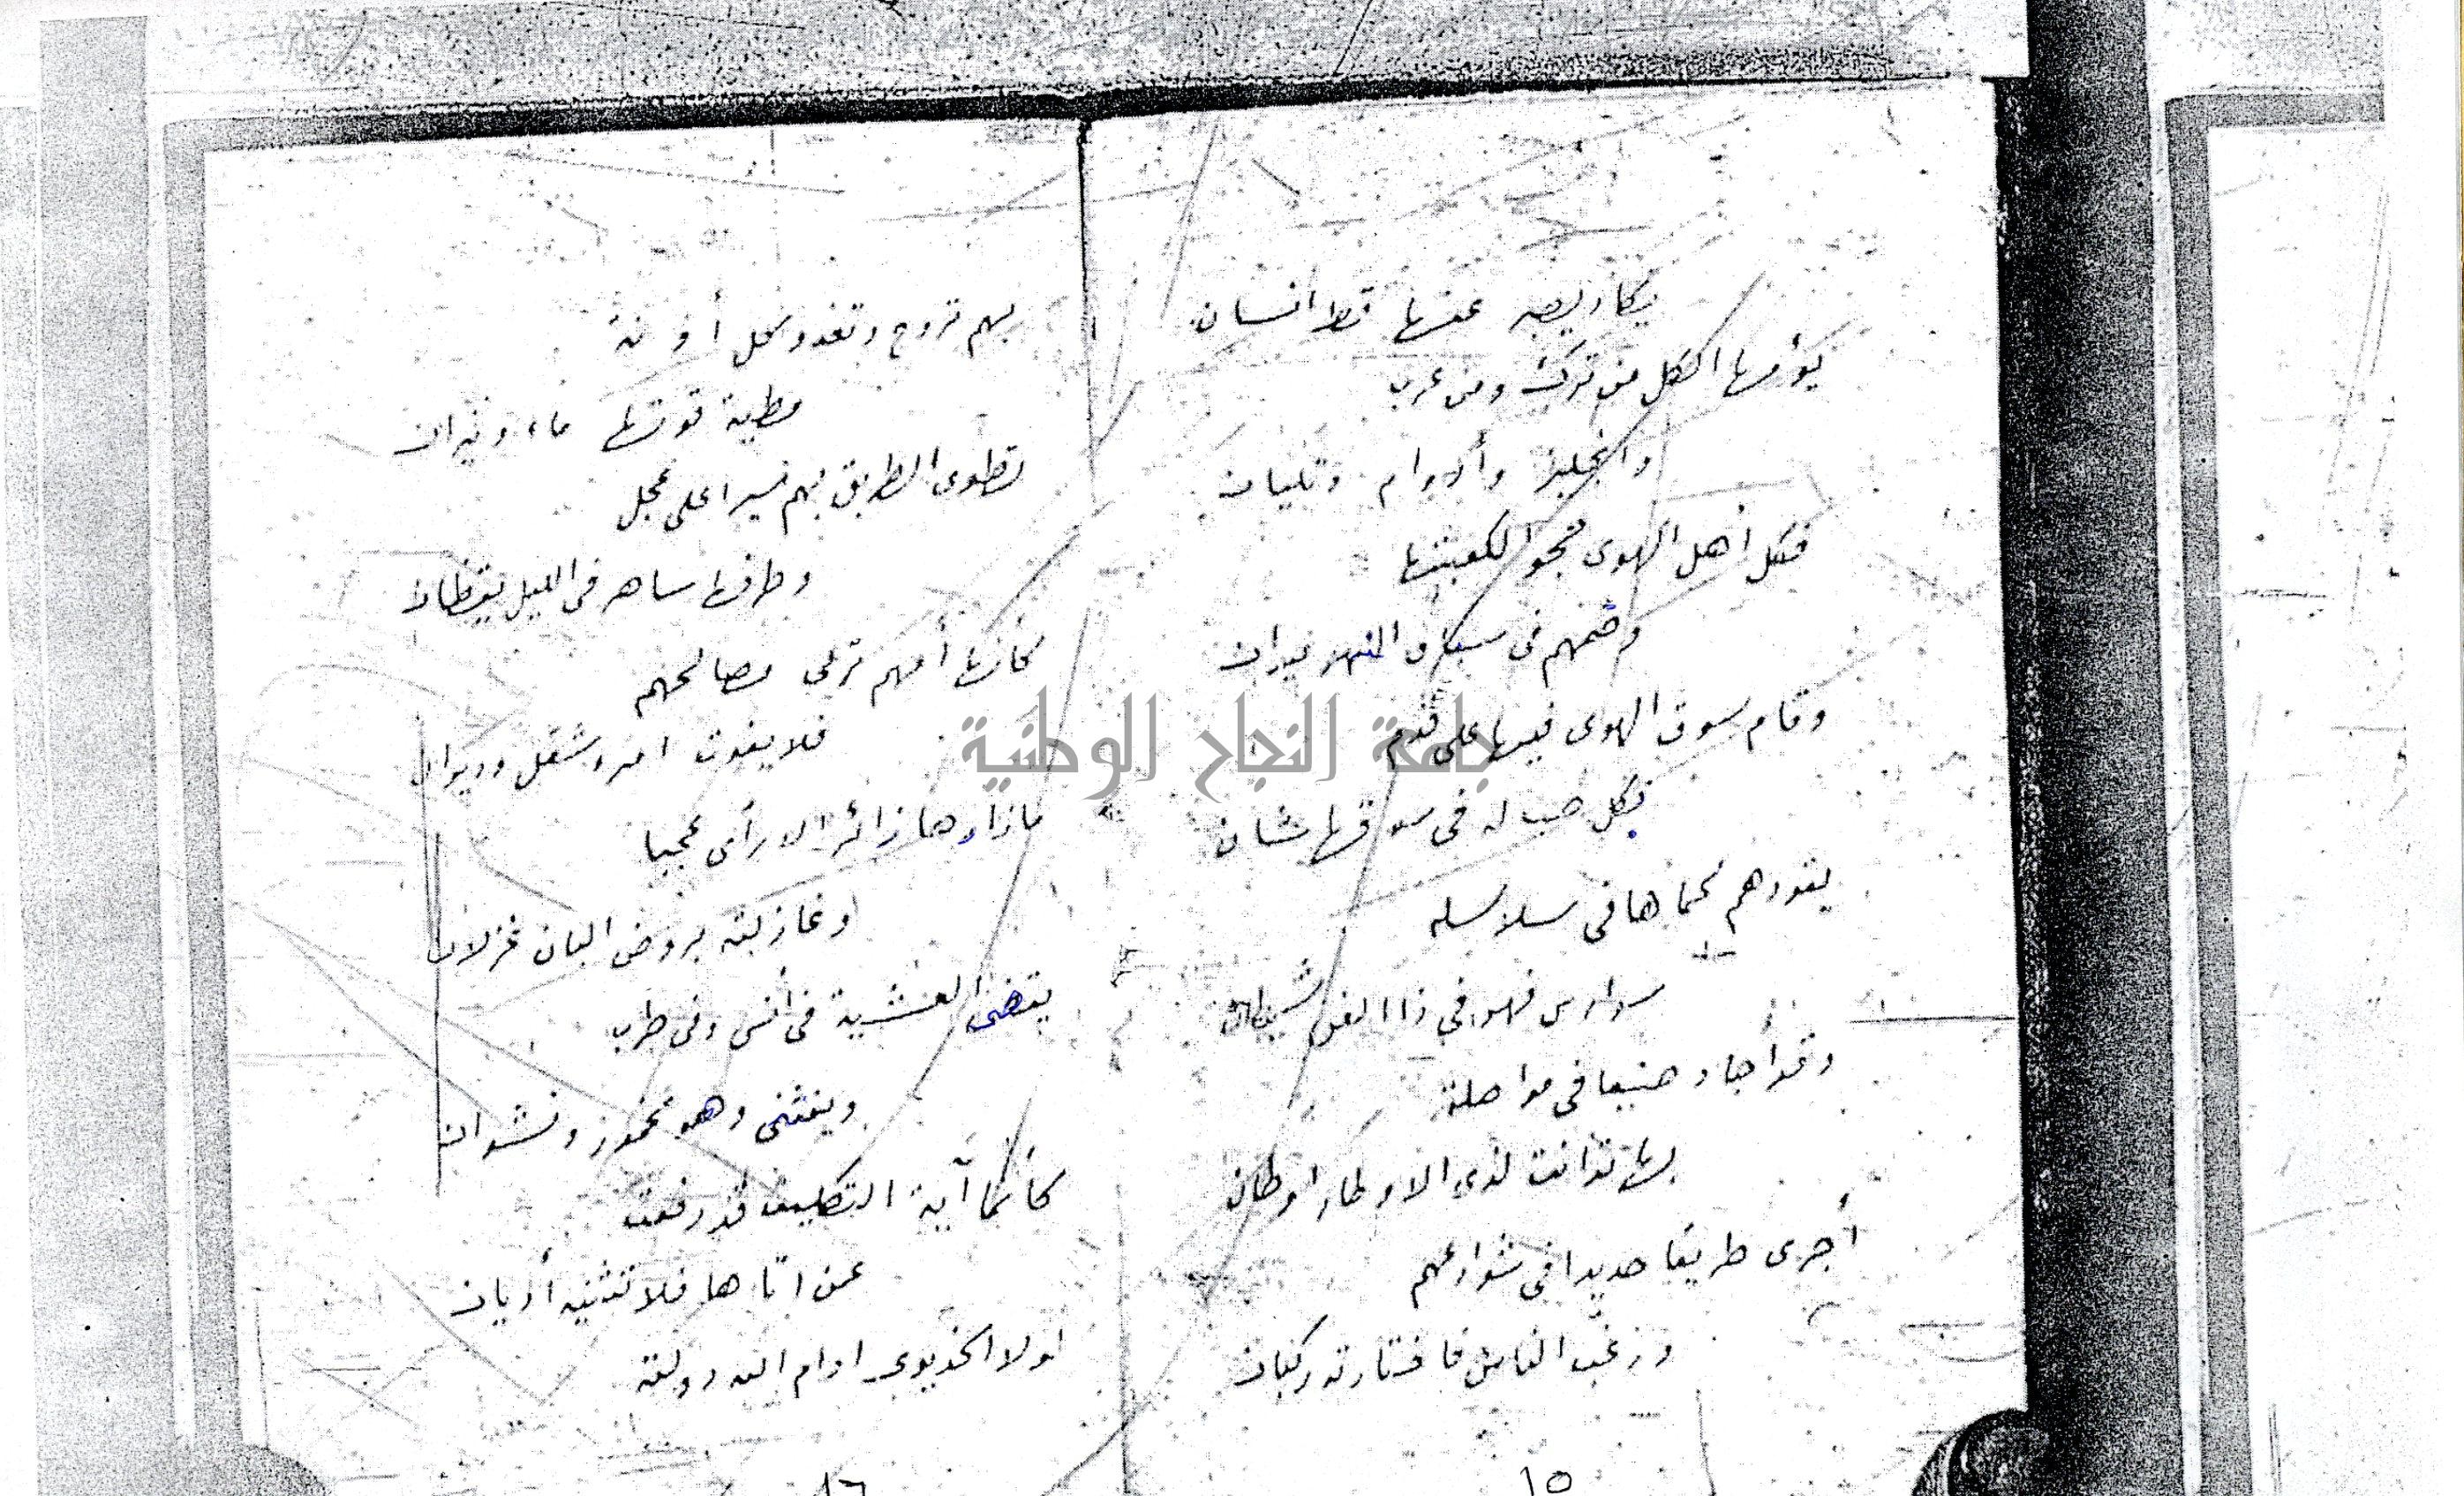 يكاد يصبر عنها قط انسان
يؤمها الكل من ترك ومن عرب
وانجليز وأروام وتليان
فكل أهل الهوى حجوا لكعبتها
وضمهم في سباق اللهو ميدان
وقام سوق الهوى فيها على قدم
فكل صب له في سوقها شان
يقودهم لحماها في سلاسله
سوارس فهو في ذا الفن شيطان
وقد أجاد صنيعا في مواصلة
بها تدانت لذي الاوطار اوطان
أجرى طريقا حديدا في شوارعهم
ورغب الناس فاختارته ركبان
١٥
بهم تروح وتغدو كل أونة
مطية قوتها ماء ونيران
تطوى الطريق بهم سيرا على عجل
وطرفها ساهر في الليل يقظان
كأنها أمهم ترعى مصالحهم
فلا يفوت امرء شغل وديوان
ما زارها زائر الا رأى عجبا
وغازلته بروض البان غزلان
يقضى العشية في أنس وفي طرب
وينثني وهو مخمور ونشوان
كأنما آية التكليف قد رفعت
عمن اتاها فلا تثنيه أديان
لولا الخديوى ادام الله دولته
١٦
جامعة النجاح الوطنية